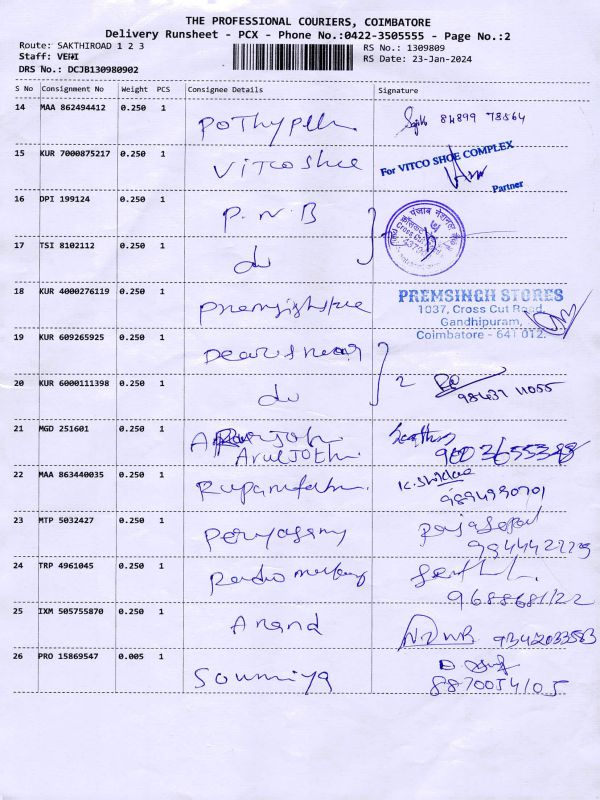 THE PROFESSIONAL COURIERS, COIMBATORE
Delivery Runsheet - PCX - Phone No.:0422-3505555 - Page No.:2
Route: SAKTHIROAD 1 2 3
RS No.: 1309809
Staff:
RS Date: 23-Jan-2024
DRS No.: DCJB130980902
S No Consignment No Weight PCS Consignee Details Signature
14 MAA 862494412 0.250 1
84899 78564
15 KUR 7000875217 0.250 1 Vitco Shoe
For VITCO SHOE COMPLEX
Partner
16 DPI 199124 0.250 1 P.N.B
पंजाब नेशनल
Cross Cut
17 TSI 8102112 0.250 1 do
18 KUR 4000276119 0.250 1
PREMSINGH STORES
1037, Cross Cut Road,
Gandhipuram,
Coimbatore - 641 012.
19 KUR 609265925 0.250 1
20 KUR 6000111398 0.250 1 do 2
98437 11055
21 MGD 251601 0.250 1
Arul Jothi
22 MAA 863440035 0.250 1
23 MTP 5032427 0.250 1 Periyasamy
24 TRP 4961045 0.250 1 Radio
9688681122
25 IXM 505755870 0.250 1 Anand
9342033583
26 PRO 15869547 0.005 1 Soumiya
8870054105